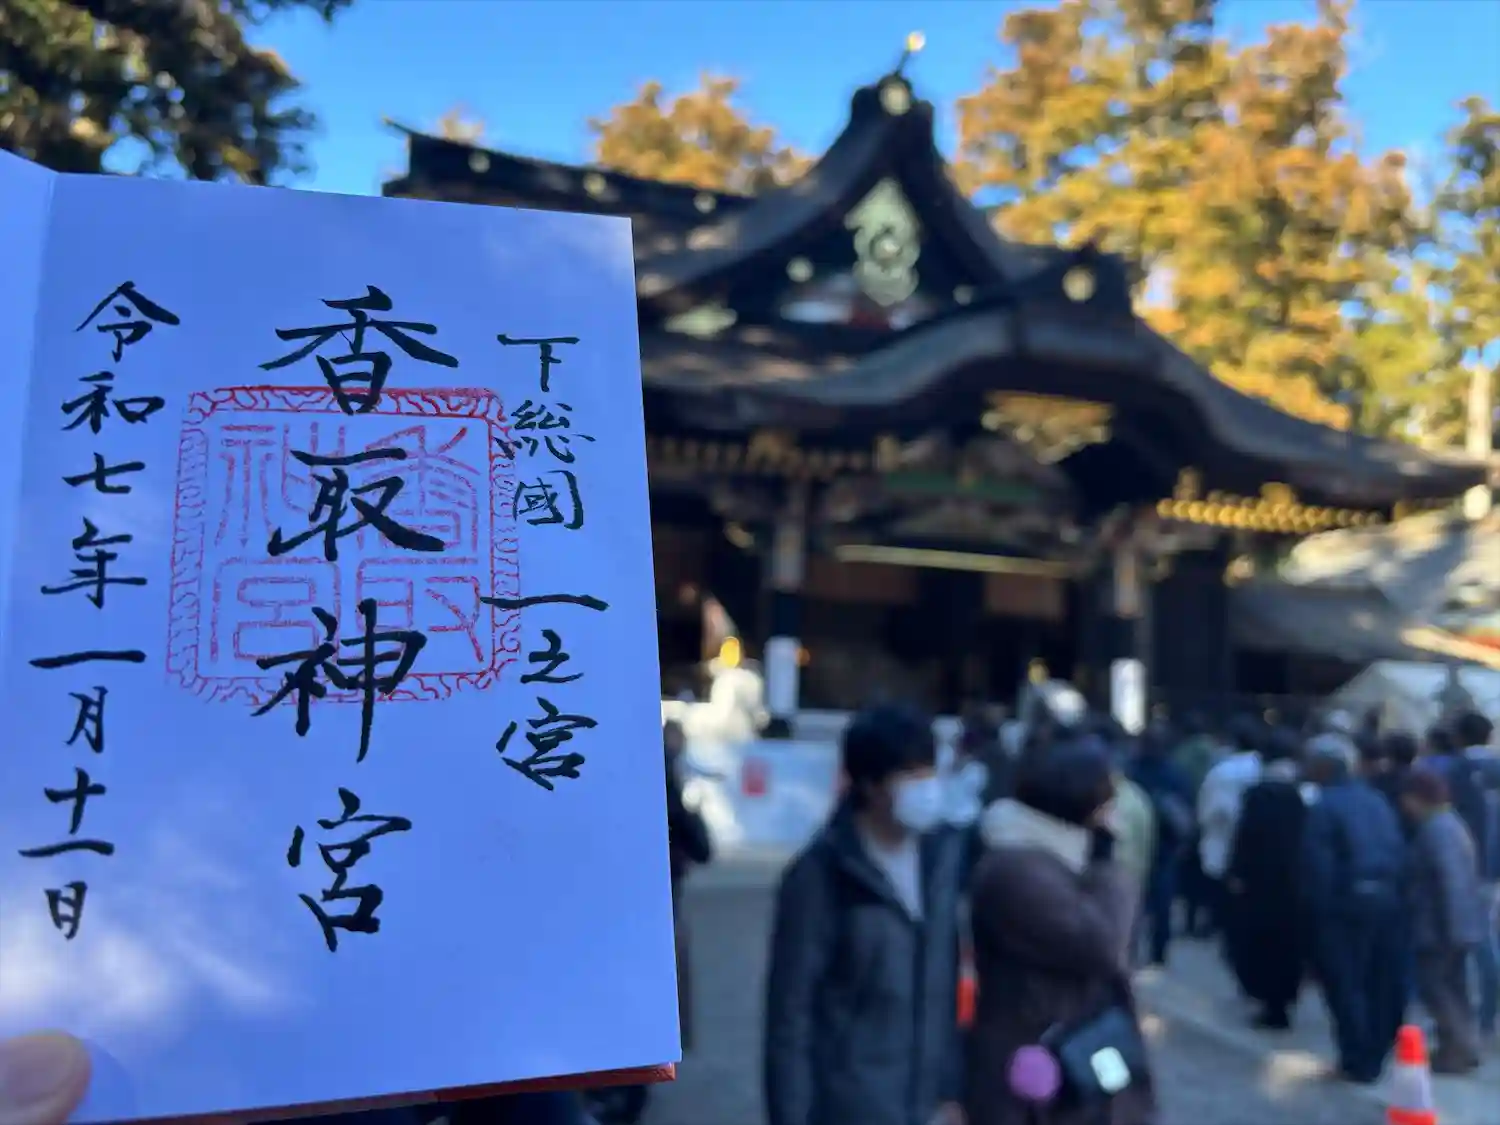 下総國 一之宮
香取神宮
香取神宮
令和七年一月十一日